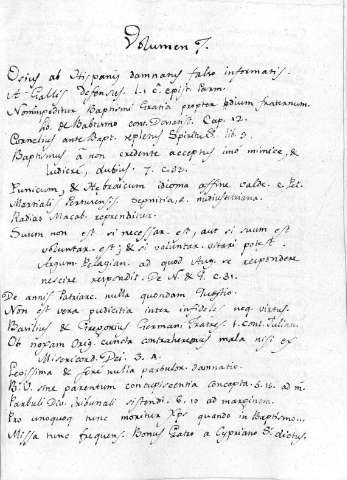 Volumen 7.
Osius ab Hispanis damnatus falso informatis.
A Gallis defensus. L. 1 c. epist. Parm.
Non impeditur Baptismi Gratia propter odium fratrum.
de Baptismo cont. Donatis. Cap. 12.
Cornelius ante Bapt. repletus Spiritu lib. 3.
Baptismus a non credente acceptus imo mimice, &
ludicre, dubius. 7. c. 52.
Punicum, & Hebraicum idioma affine valde. c. Pet.
Martiali
Radias Macab. reprenditur.
Suum non est si necessar. est, aut si suum est
voluntar. est; & si voluntar. vitari potest.
Argum. Pelagian. ad quod Aug. se respondere
nescire respondit. De N. & G. c. 31.
De annis Patriarc. nulla quondam Quæstio.
Non est vera pudicitia inter infideles neq. virtus.
Basilius & Gregorius Germani Fratres. 1. cont. Julian.
Ob noxam Orig. cuncta contraheremus mala nisi ex
Misericord. Dei. 3. A.
Levissima & fere nulla parvulor. damnatio.
B. V. sine parentum concupiscentia concepta. 6. 16. ad m.
Parvuli Div. tribunali sistendi. 6. 10 ad marginem.
Pro unoquoq. tunc moritur Xps quando in Baptismo...
Missa tunc frequens. Bonus a Cypriano dictus.